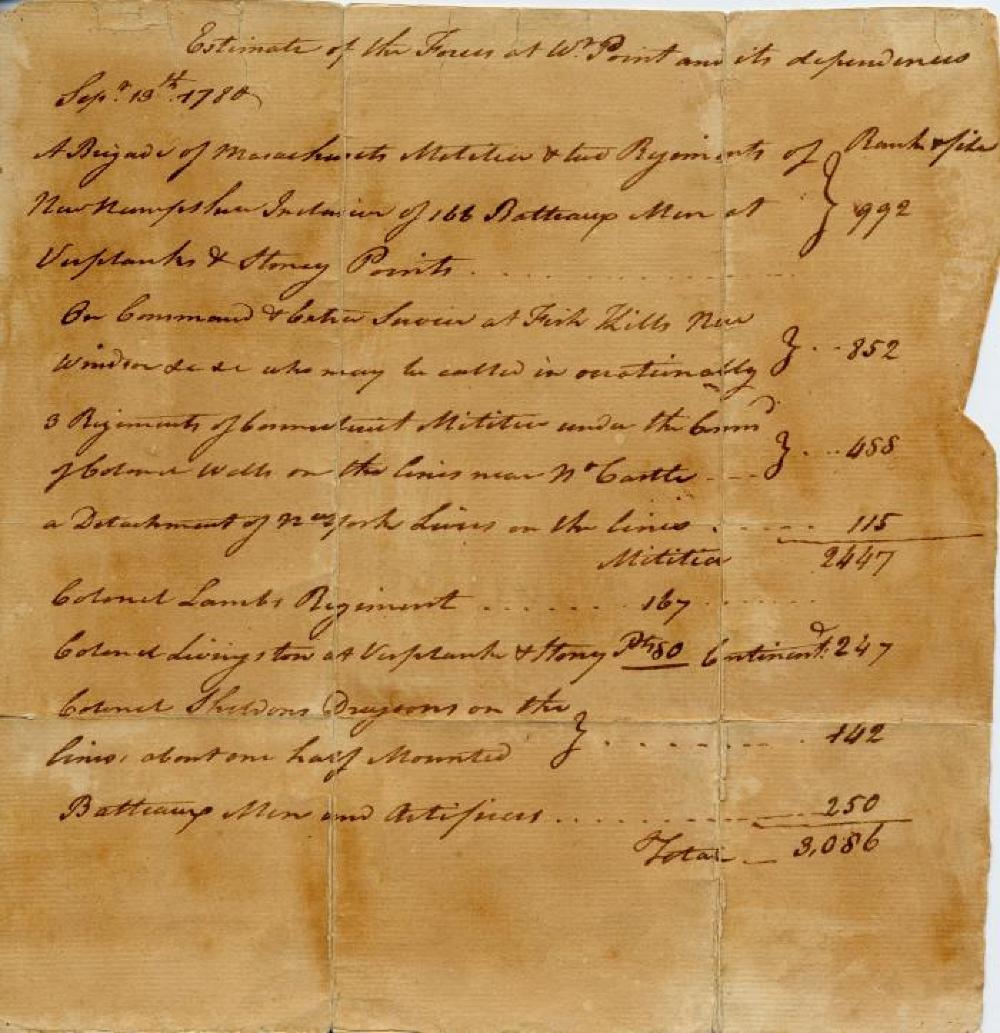 Estimate of the Forces at Wt. Point and its dependences
Sepr. 13th. 1780
A Brigade of Masachusets Militia & two Regiments of } Rank & file
New Hampshire Inclusive of 166 Batteaux Men at } 992
Verplanks & Stoney Points . . . . . . . . . .
On Command & Extra Service at Fish Kills New
Windsor &c &c who may be called in occationally } . . . 852
3 Regiments of Connecticut Militia under the Comd
of Colonel Wells on the lines near N. Castle - - - } . . . 488
a Detachment of New York Levies on the lines . . . . . 115
Militia 2447
Colonel Lambs Regiment . . . . . . 167 . . . . . .
Colonel Livingston at Verplank & Stoney Pts 80 Continent: 247
Colonel Sheldons Dragoons on the
lines, about one half Mounted } . . . . . . . . . 142
Batteaux Men and Artificers . . . . . . . . . . . . 250
Total - 3,086